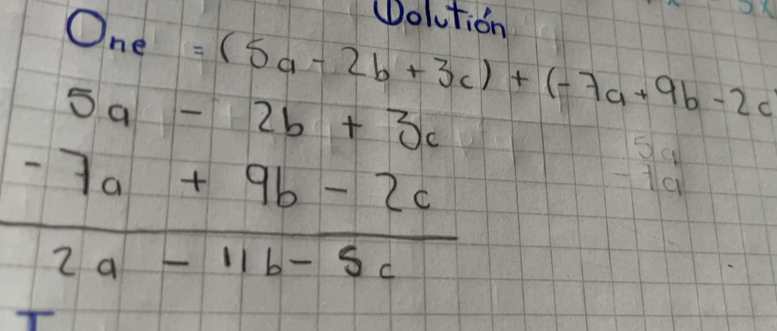 Solution
One = (5a - 2b + 3c) + (-7a + 9b - 2c
5a - 2b + 3c
-7a + 9b - 2c
2a - 11b - 5c
5a
-7a